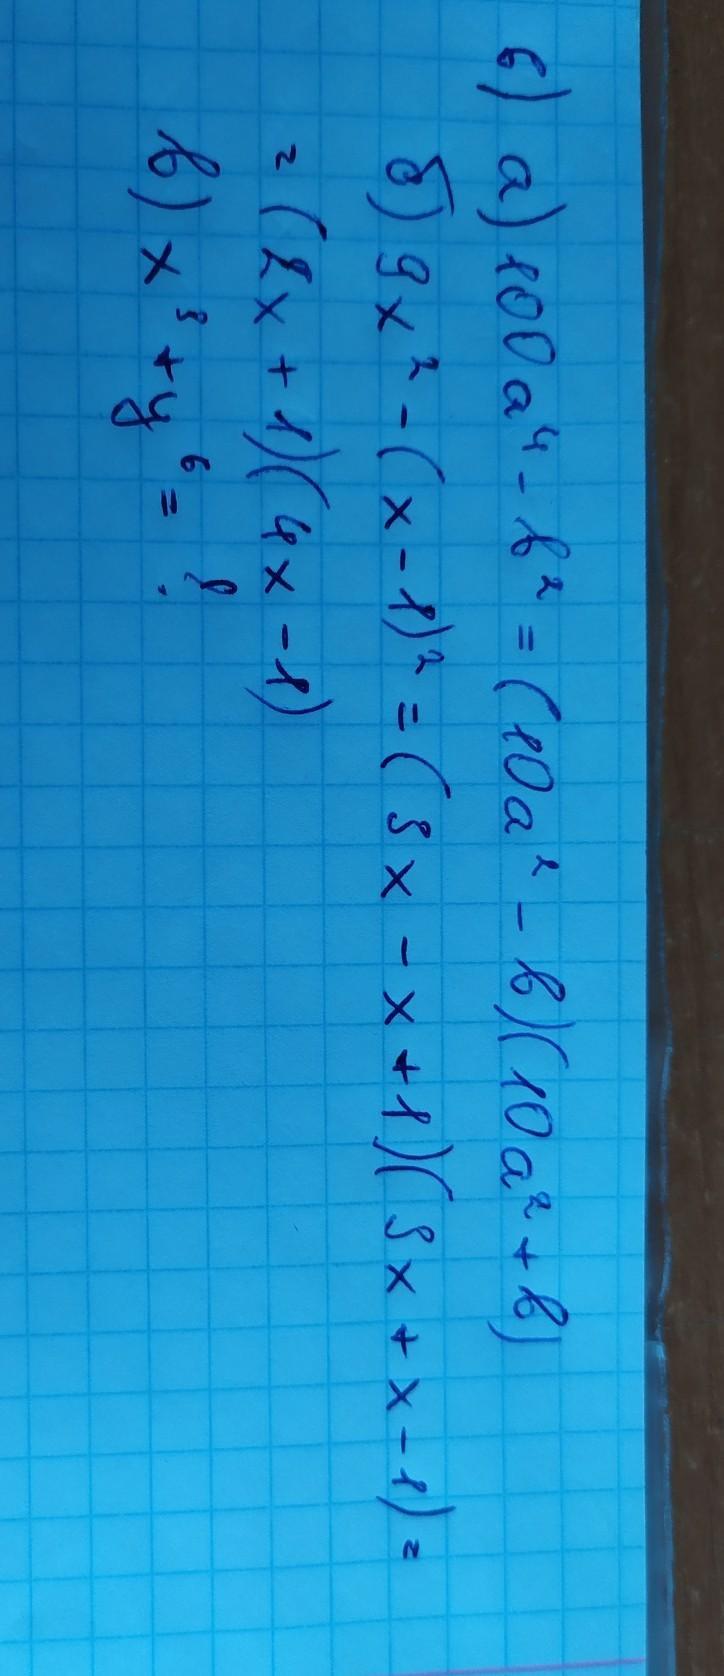 6) а) 100a⁴ - b² = (10a² - b)(10a² + b)
б) 9x² - (x - 1)² = (3x - x + 1)(3x + x - 1) =
= (2x + 1)(4x - 1)
в) x³ + y⁶ = ?